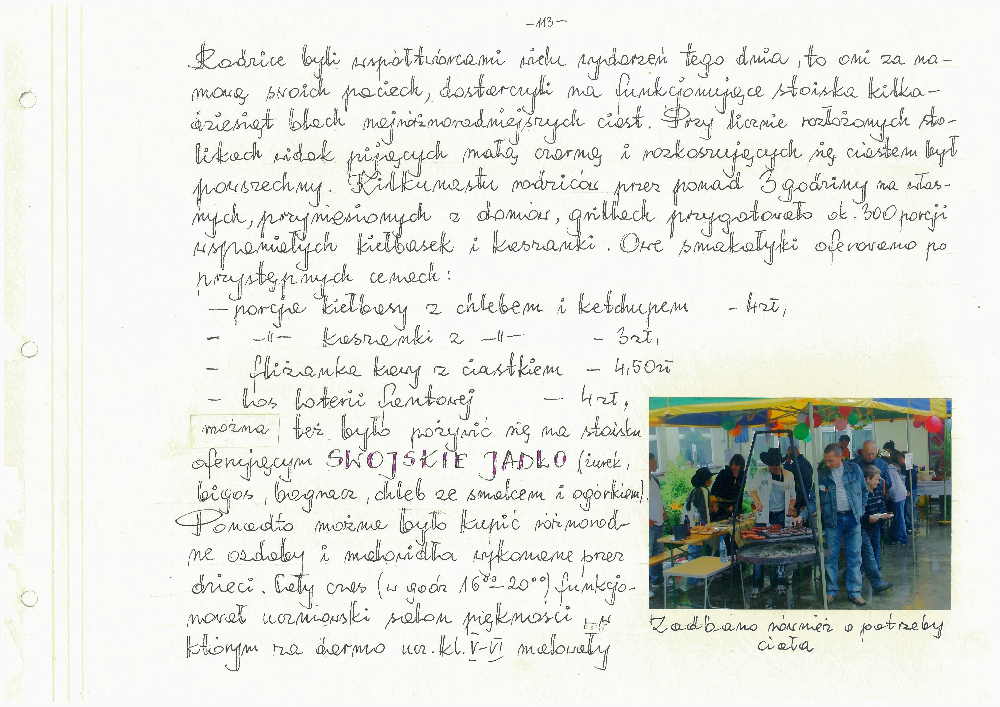 -113-
Rodzice byli współtwórcami wielu wydarzeń tego dnia, to oni za na-
mową swoich pociech, dostarczyli na funkcjonujące stoiska kilka-
dziesiąt blach najróżnorodniejszych ciast. Przy licznie rozłożonych sto-
likach widok pijących małą czarną i rozkoszujących się ciastem był
powszechny. Kilkunastu rodziców przez ponad 3 godziny na włas-
nych, przyniesionych z domów, grillach przygotowało ok. 300 porcji
wspaniałych kiełbasek i kaszanki. Owe smakołyki oferowano po
przystępnych cenach:
- porcja kiełbasy z chlebem i ketchupem - 4zł,
- -"- kaszanki z -"- - 3zł,
- filiżanka kawy z ciastkiem - 4,50zł
- los loterii fantowej - 4zł,
można też było pożywić się na stoisku
oferującym SWOJSKIE JADŁO (żurek,
bigos, bogracz, chleb ze smalcem i ogórkiem).
Ponadto można było kupić różnorod-
ne ozdoby i malowidła wykonane przez
dzieci. Cały czas (w godz 16°°-20°°) funkcjo-
nował uczniowski salon piękności w
którym za darmo ucz. kl. V-VI malowały
Zadbano również o potrzeby
ciała